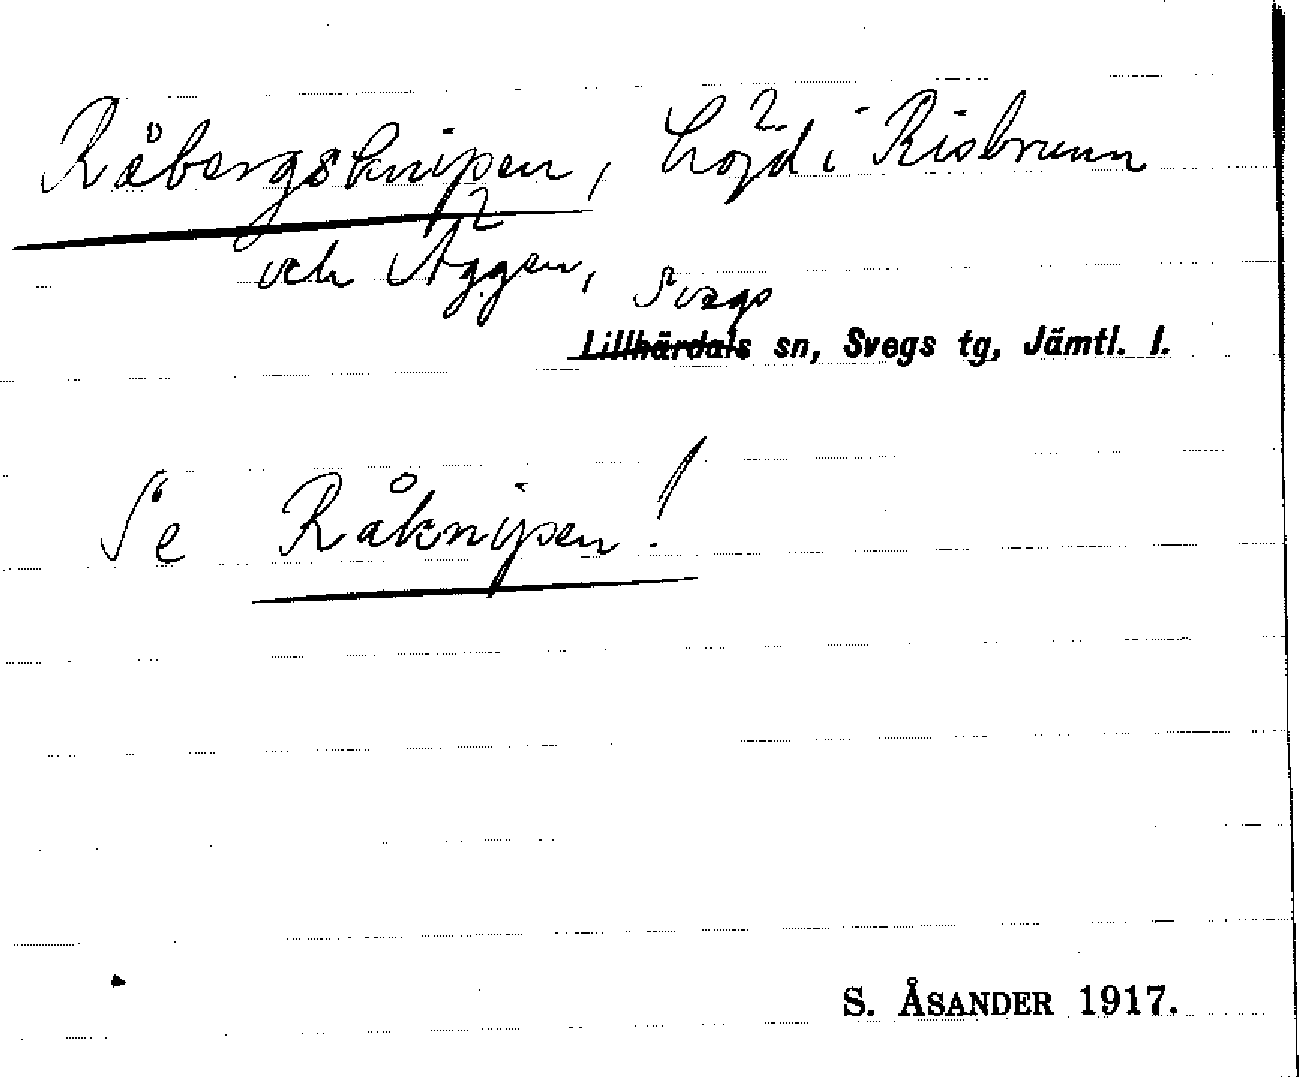 Råbergsknipen, Höjd i Risbrunn
och Äggen,
Svegs
Lillhärdals sn, Svegs tg, Jämtl. l.
Se Råknipen!
S. ÅSANDER 1917.